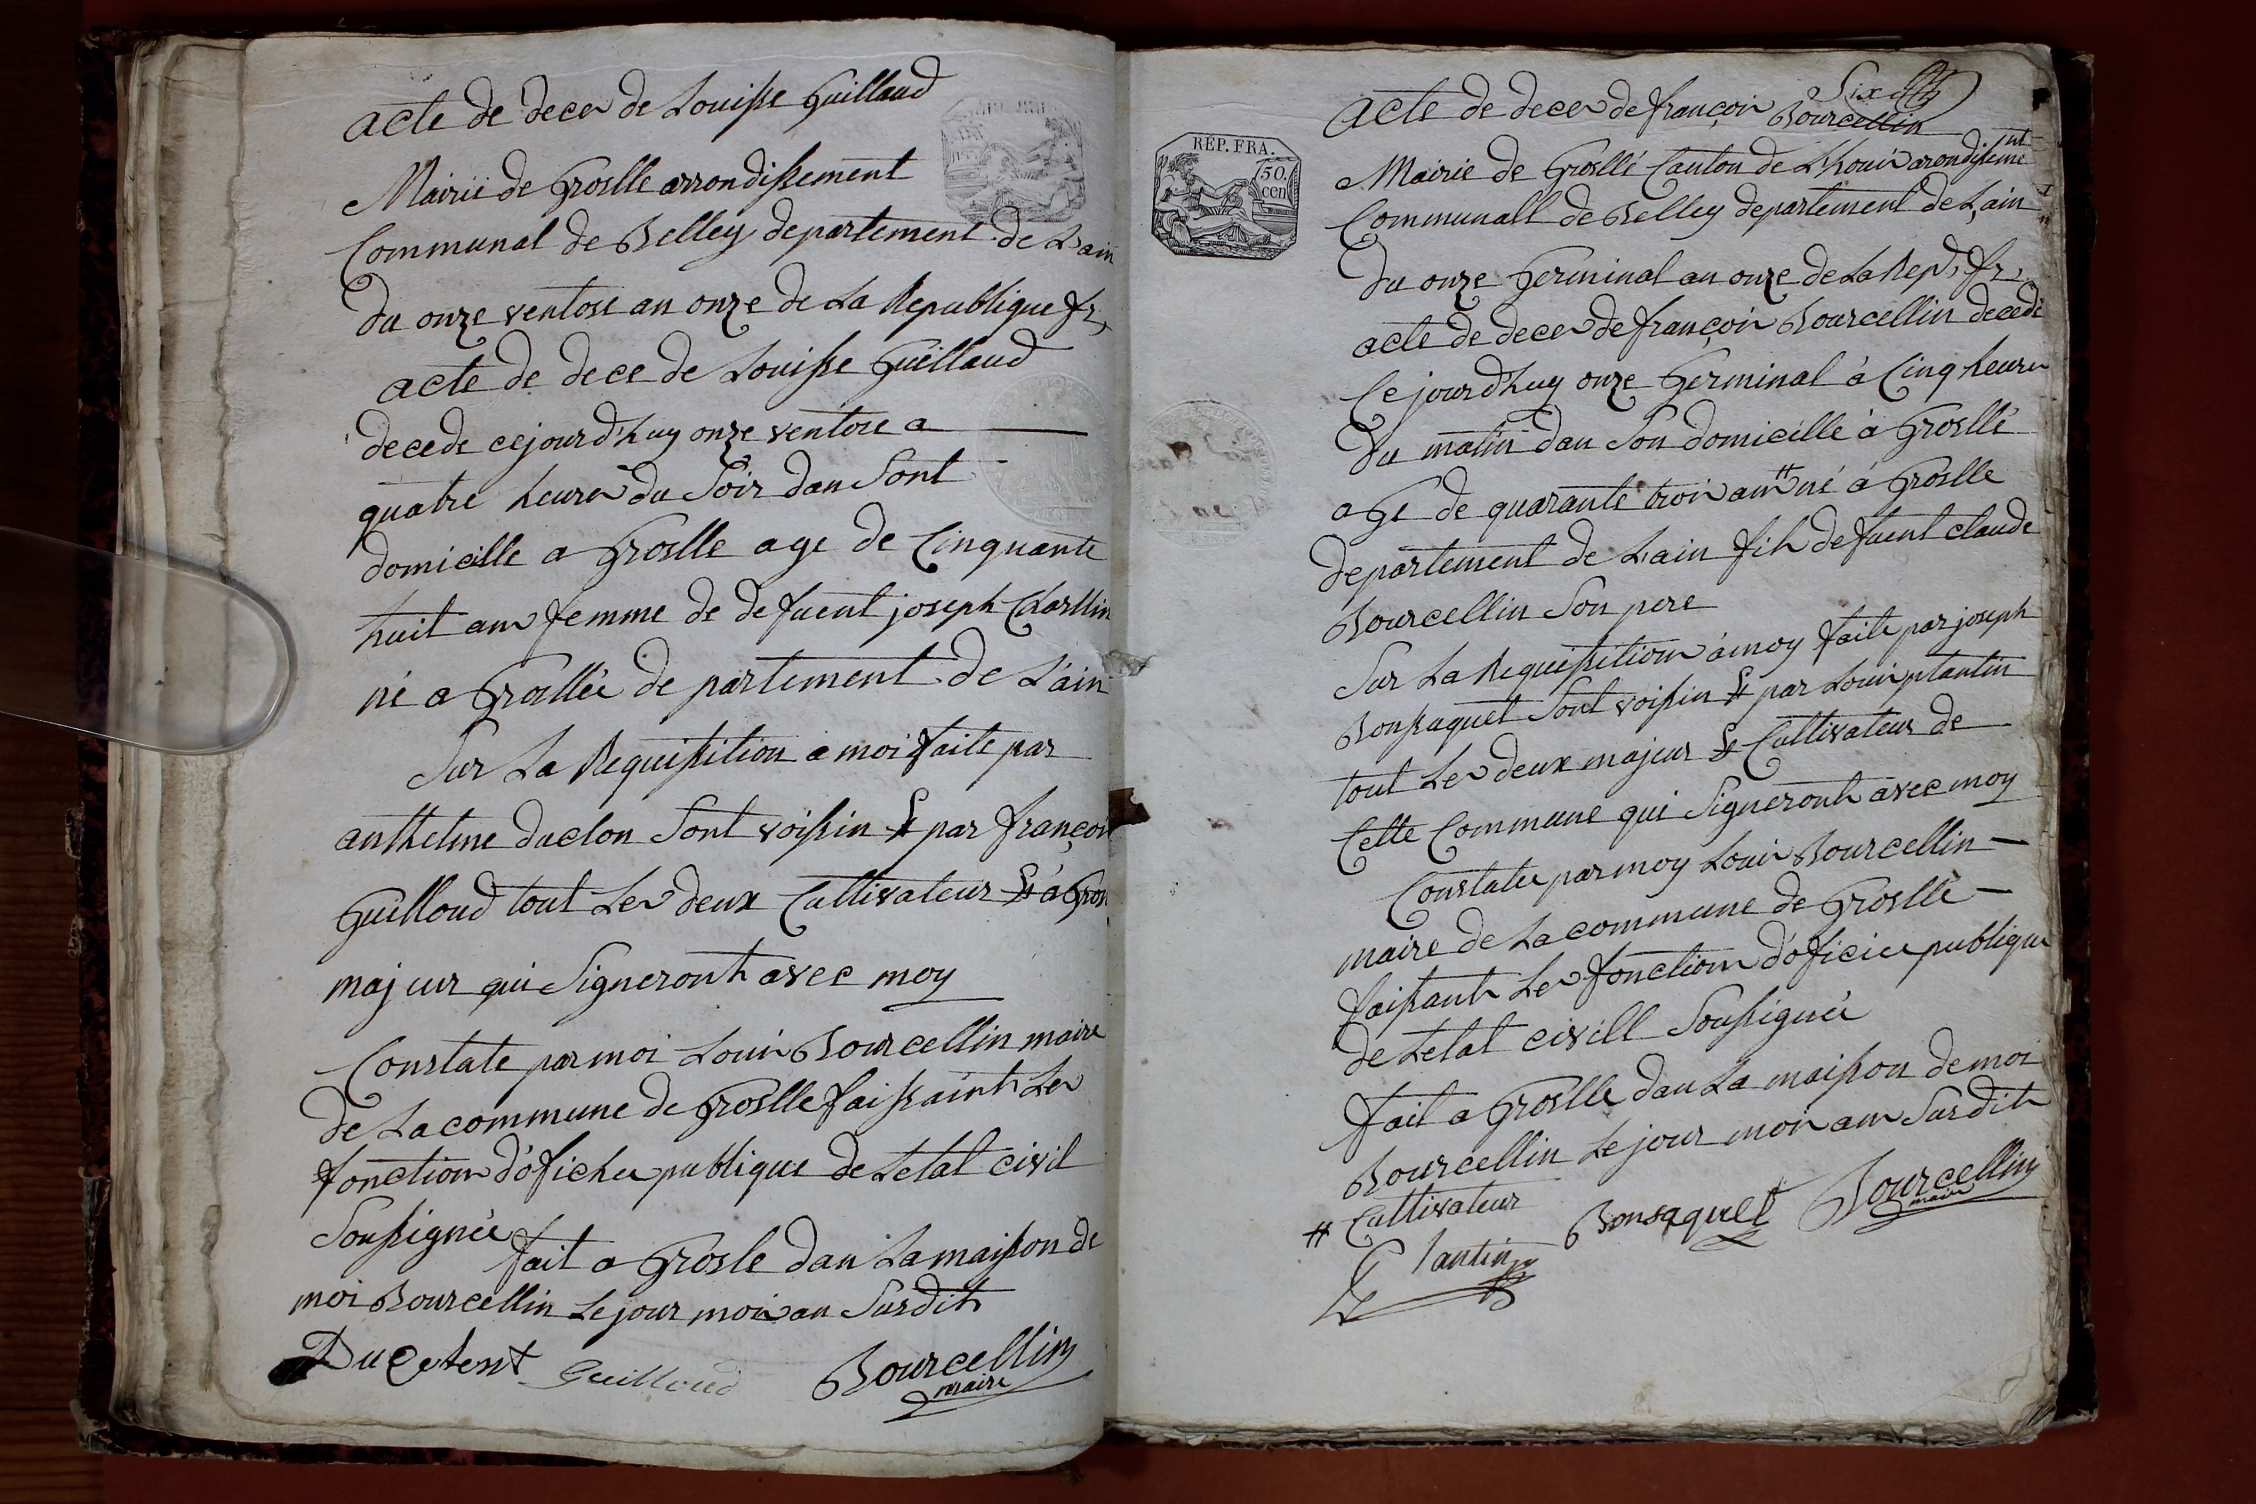 acte de deces de Louisse Guilland
Mairie de Groslle arrondissement
Communal de Belley departement de Lain
du onze ventose an onze de La Republique fr,
acte de dece de Louisse Guilland
decede cejourd'huy onze ventose a
quatre heures du Soir dan Sont
domicille a Groslle age de Cinquante
huit ans femme de defuent joseph Charllin
né a Grosllée departement de L'ain
Sur La Requissition a moi faite par
anthelme duclon Sont voissin & par françois
Guilloud tout Les deux Cultivateur & a Gros
majeur qui Signeronts avec moy
Constate par moi Louis Bourcellin maire
de La commune de Groslle faissaints Les
fonctions d'oficher publique de Letat civil
Soussignée
fait a Grosle dan La maisson de
moi Bourcellin Le jour mois an Susdits
Guilloud Bourcellin
maire
Six
REP. FRA.
50
cen
acte de deces de françois Bourcellin
Mairie de Grosllé Canton de Lhouis arondisseme
nt
Communall de Belley departement de L,ain
du onze Germinal an onze de La Rep, fr,
acte de deces de françois Bourcellin decedé
Ce jourd'huy onze Germinal à Cinq heures
du matin dan Son domicille à Grosllé
age de quarante trois ans # né á Groslle
departement de Lain fils defuent claude
Bourcellin Son pere
Sur La Requissition á moy faite par joseph
Bonsaquet Sont voissin & par Louis plantin
tout Les deux majeur & Cultivateur de
Cette Commune qui Signeronts avec moy
Constatée par moy Louis Bourcellin
maire de La commune de Grosllé
faissants Les fonctions d'oficier publique
de Letat civill Soussignée
fait a Groslle dan La maisson de moi
Bourcellin Le jour mois ans Susdits
# Cultivateur
Plantin Bonsaquet Bourcellin
maire